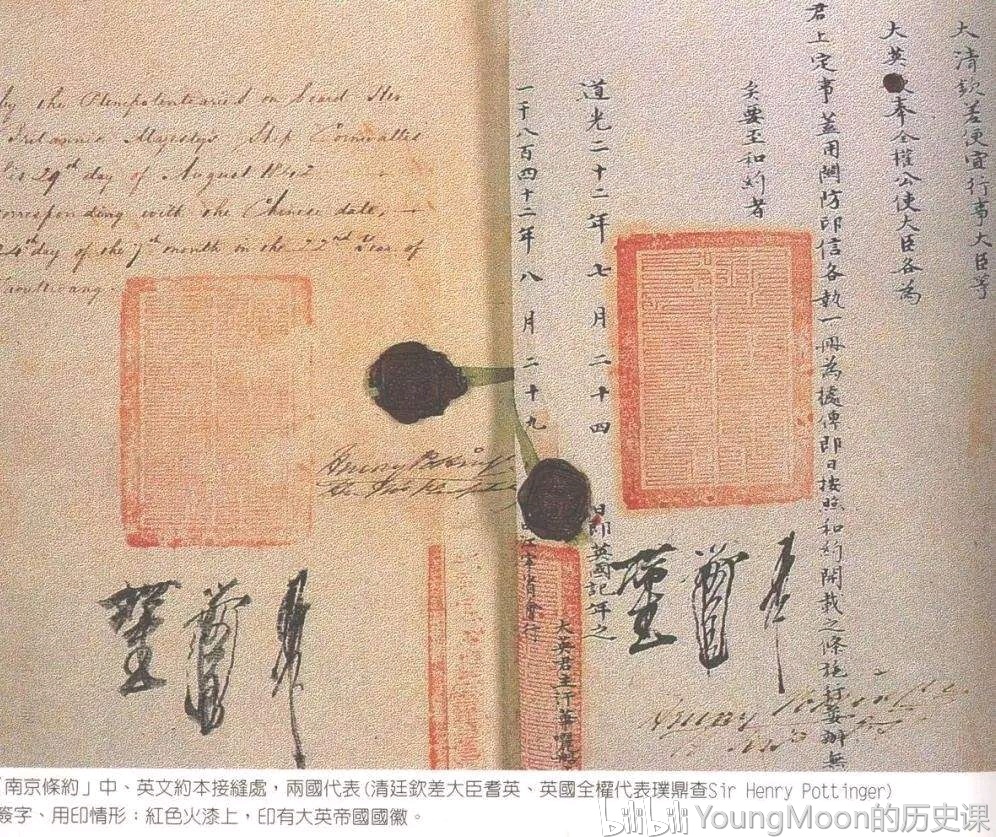 by the Plenipotentiaries on board Her
Britannic Majesty's Ship Cornwallis
this 29th day of August 1842
corresponding with the Chinese date,
24th day of the 7th month in the 22nd Year of
Taoukwang.
Henry Pottinger
大清欽差便宜行事大臣等
大英奉全權公使大臣各為
君上定事蓋用關防印信各執一冊為據俾即日按照和約開載之條施行妥辦無
矣要至和約者
道光二十二年七月二十四日即英國記年之
一千八百四十二年八月二十九省會行
大英君主汗華
Henry Pottinger
「南京條約」中、英文約本接縫處，兩國代表(清廷欽差大臣耆英、英國全權代表璞鼎查Sir Henry Pottinger)
簽字、用印情形：紅色火漆上，印有大英帝國國徽。
bilibili YoungMoon的历史课